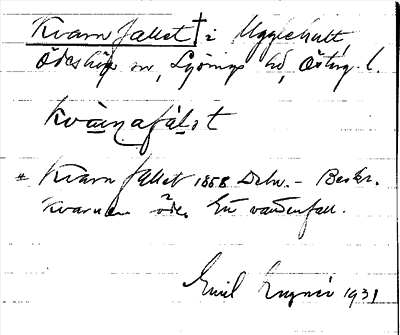 Kvarnfallet † i Ugglehult
Ödeshög sn, Lysings hd, Österg. l.
Kvarnafalet
* Kvarnfallet 1858 Deln. - Beskr.
Kvarnen öde. Ett vattenfall.
Emil 1931